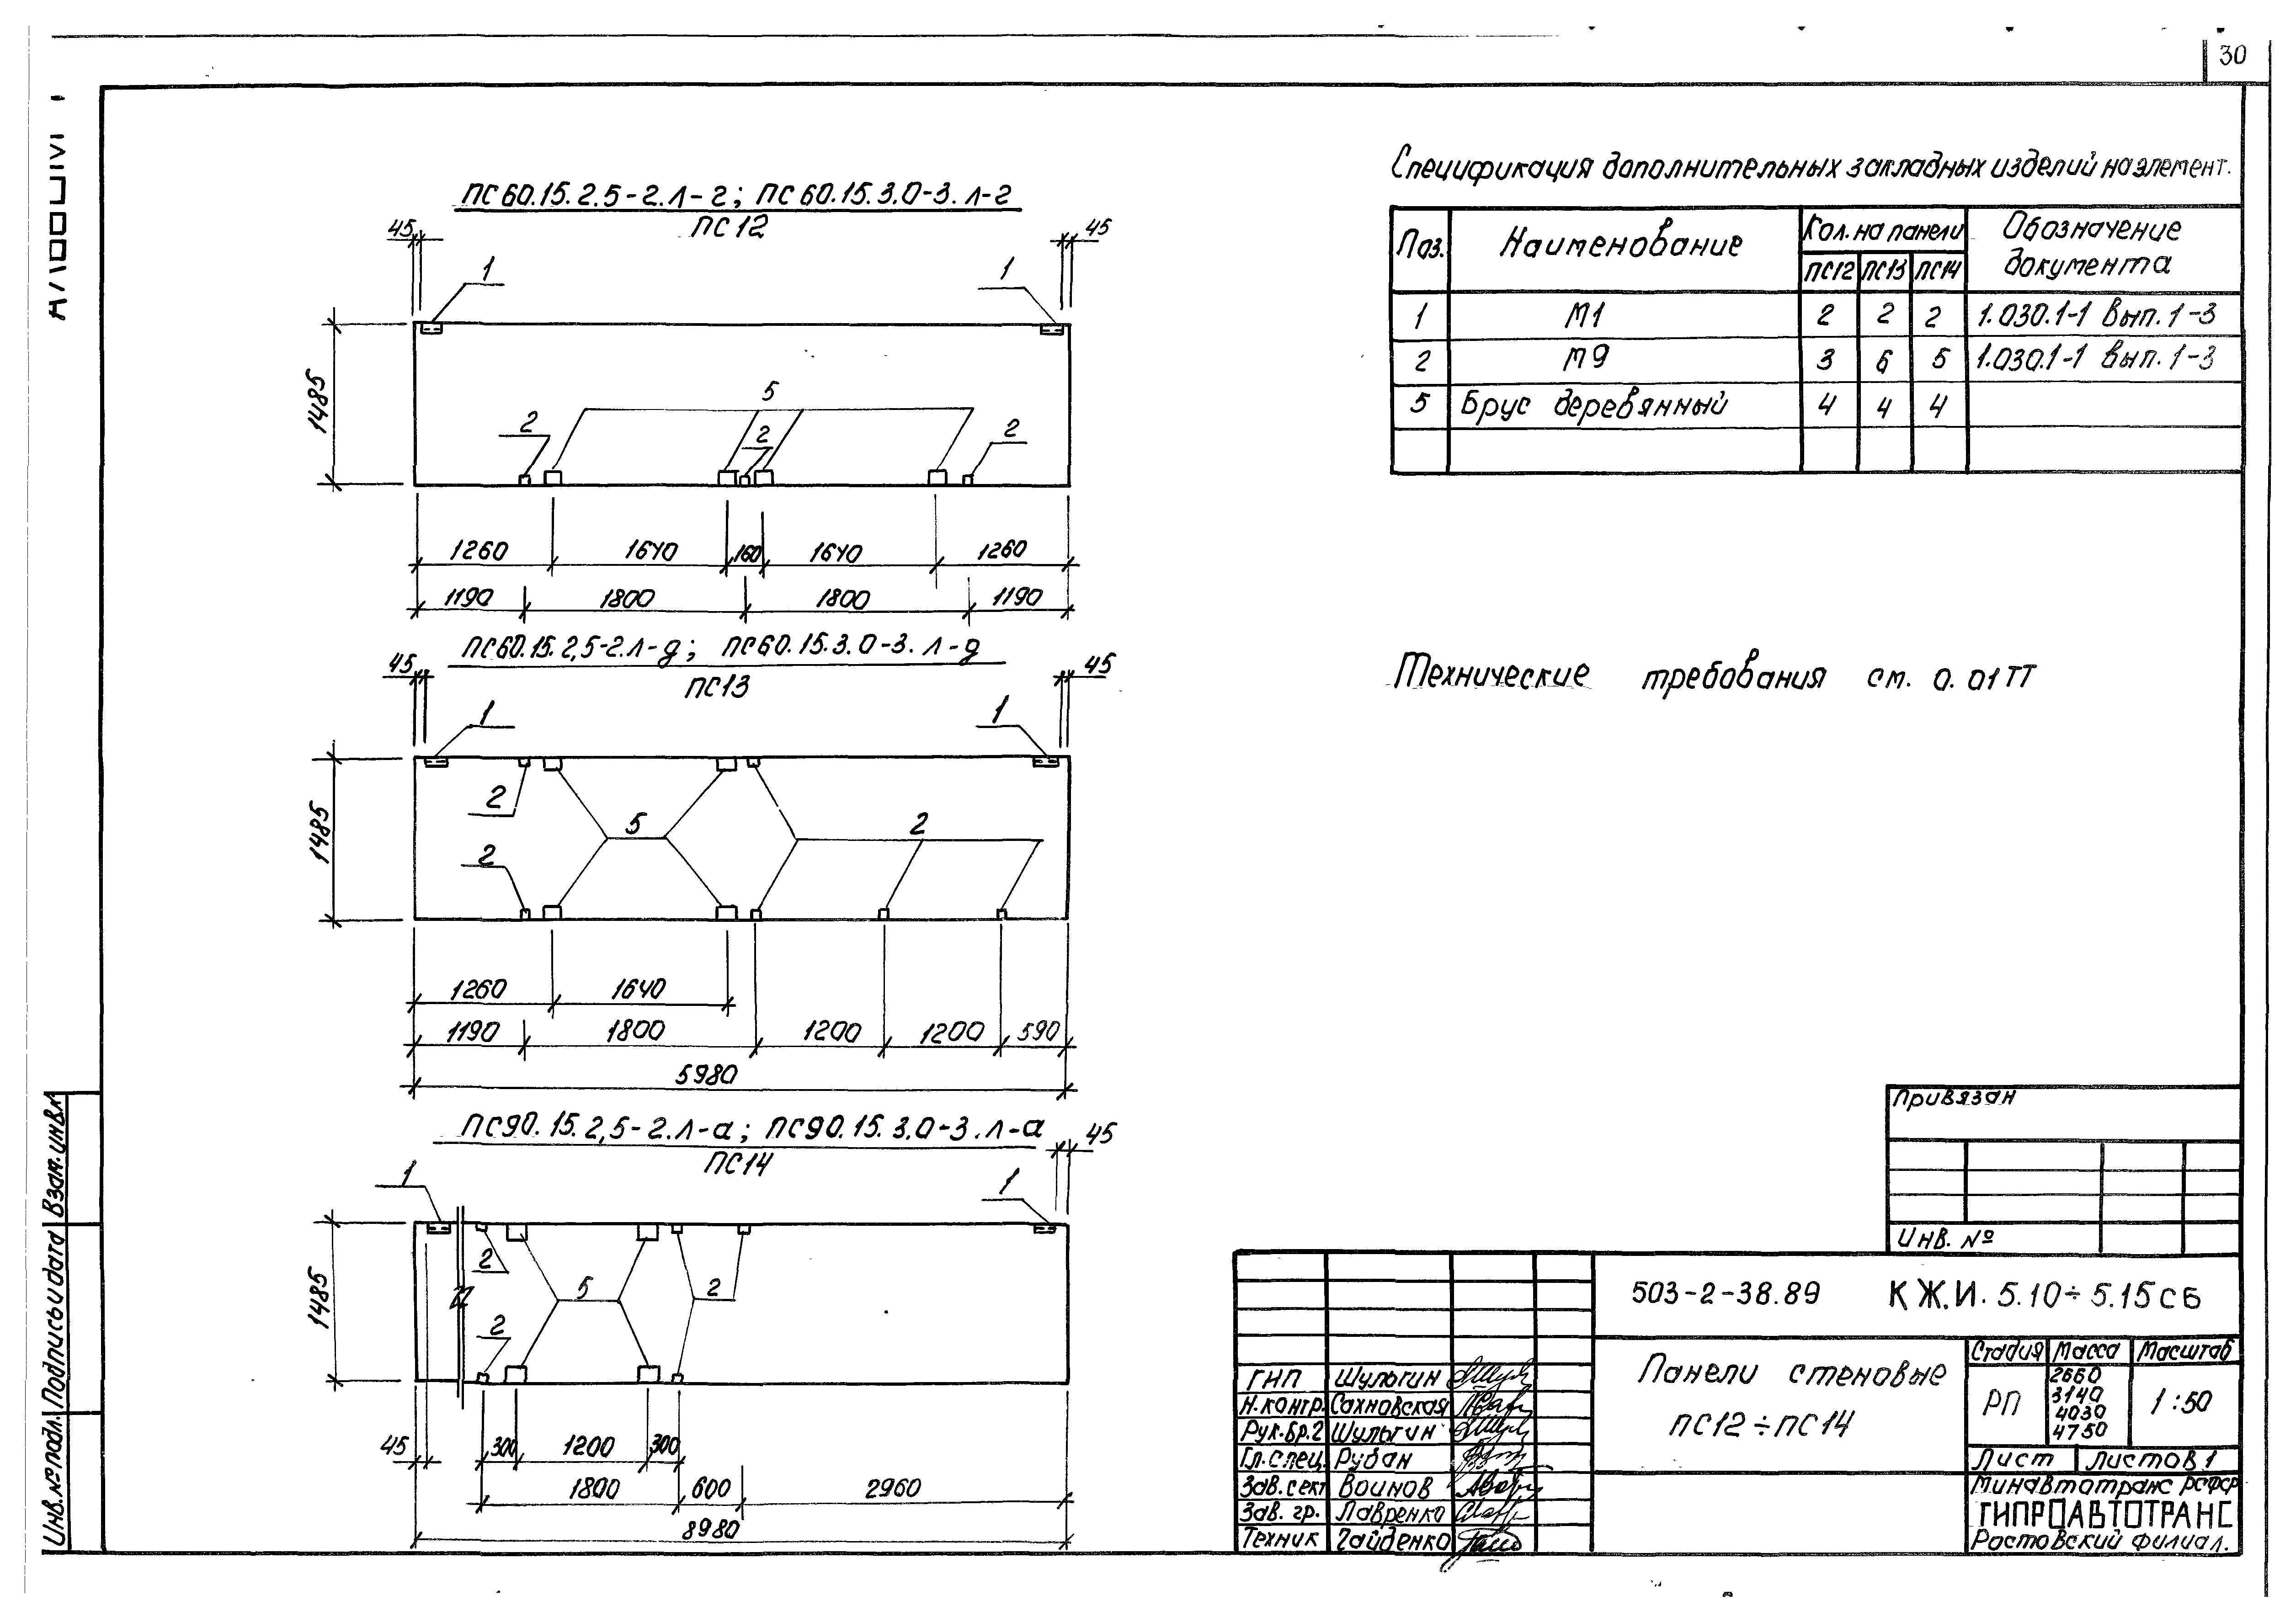 30
Альбом VI
ПС60.15.2.5-2.Л-г; ПС60.15.3.0-3.Л-г
ПС12
45
45
1
1
1485
5
2
2
2
1260 1640 160 1640 1260
1190 1800 1800 1190
ПС60.15.2,5-2.Л-д; ПС60.15.3.0-3.Л-д
ПС13
45
45
1
1
1485
2
5
2
2
1260 1640
1190 1800 1200 1200 590
5980
ПС90.15.2,5-2.Л-а; ПС90.15.3.0-3.Л-а
ПС14
45
1
1
1485
2
5
2
2
45 300 1200 300
1800 600 2960
8980
Спецификация дополнительных закладных изделий на элемент.
Поз. Наименование Кол. на панели Обозначение документа
ПС12 ПС13 ПС14
1 М1 2 2 2 1.030.1-1 Вып. 1-3
2 М9 3 6 5 1.030.1-1 Вып. 1-3
5 Брус деревянный 4 4 4
Технические требования см. 0.01ТТ
Привязан
Инв. №
503-2-38.89 КЖ.И. 5.10÷5.15СБ
Панели стеновые
ПС12÷ПС14
Стадия Масса Масштаб
РП
2660
3140
4030
4750
1:50
Лист Листов 1
Минавтотранс РСФСР
ГИПРОАВТОТРАНС
Ростовский филиал.
ГИП Шульгин
Н.контр. Сахновская
Рук.бр.2 Шульгин
Гл.спец. Рубан
Зав.сект Воинов
Зав. гр. Лавренко
Техник Гайденко
Инв.№подл. Подпись и дата Взам.инв.№